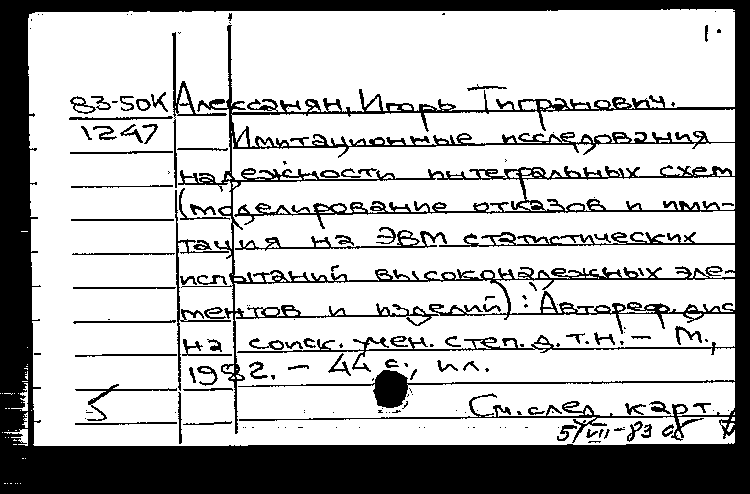 1.
83-50К Алексанян, Игорь Тигранович.
1247 Имитационные исследования
надежности интегральных схем
(моделирование отказов и ими-
тация на ЭВМ статистических
испытаний высоконадежных эле-
ментов и изделий): Автореф. дис
на соиск. учен. степ. д. т. н. - М.,
1982. - 44 с., ил.
5 См. след. карт.
5/VII-83